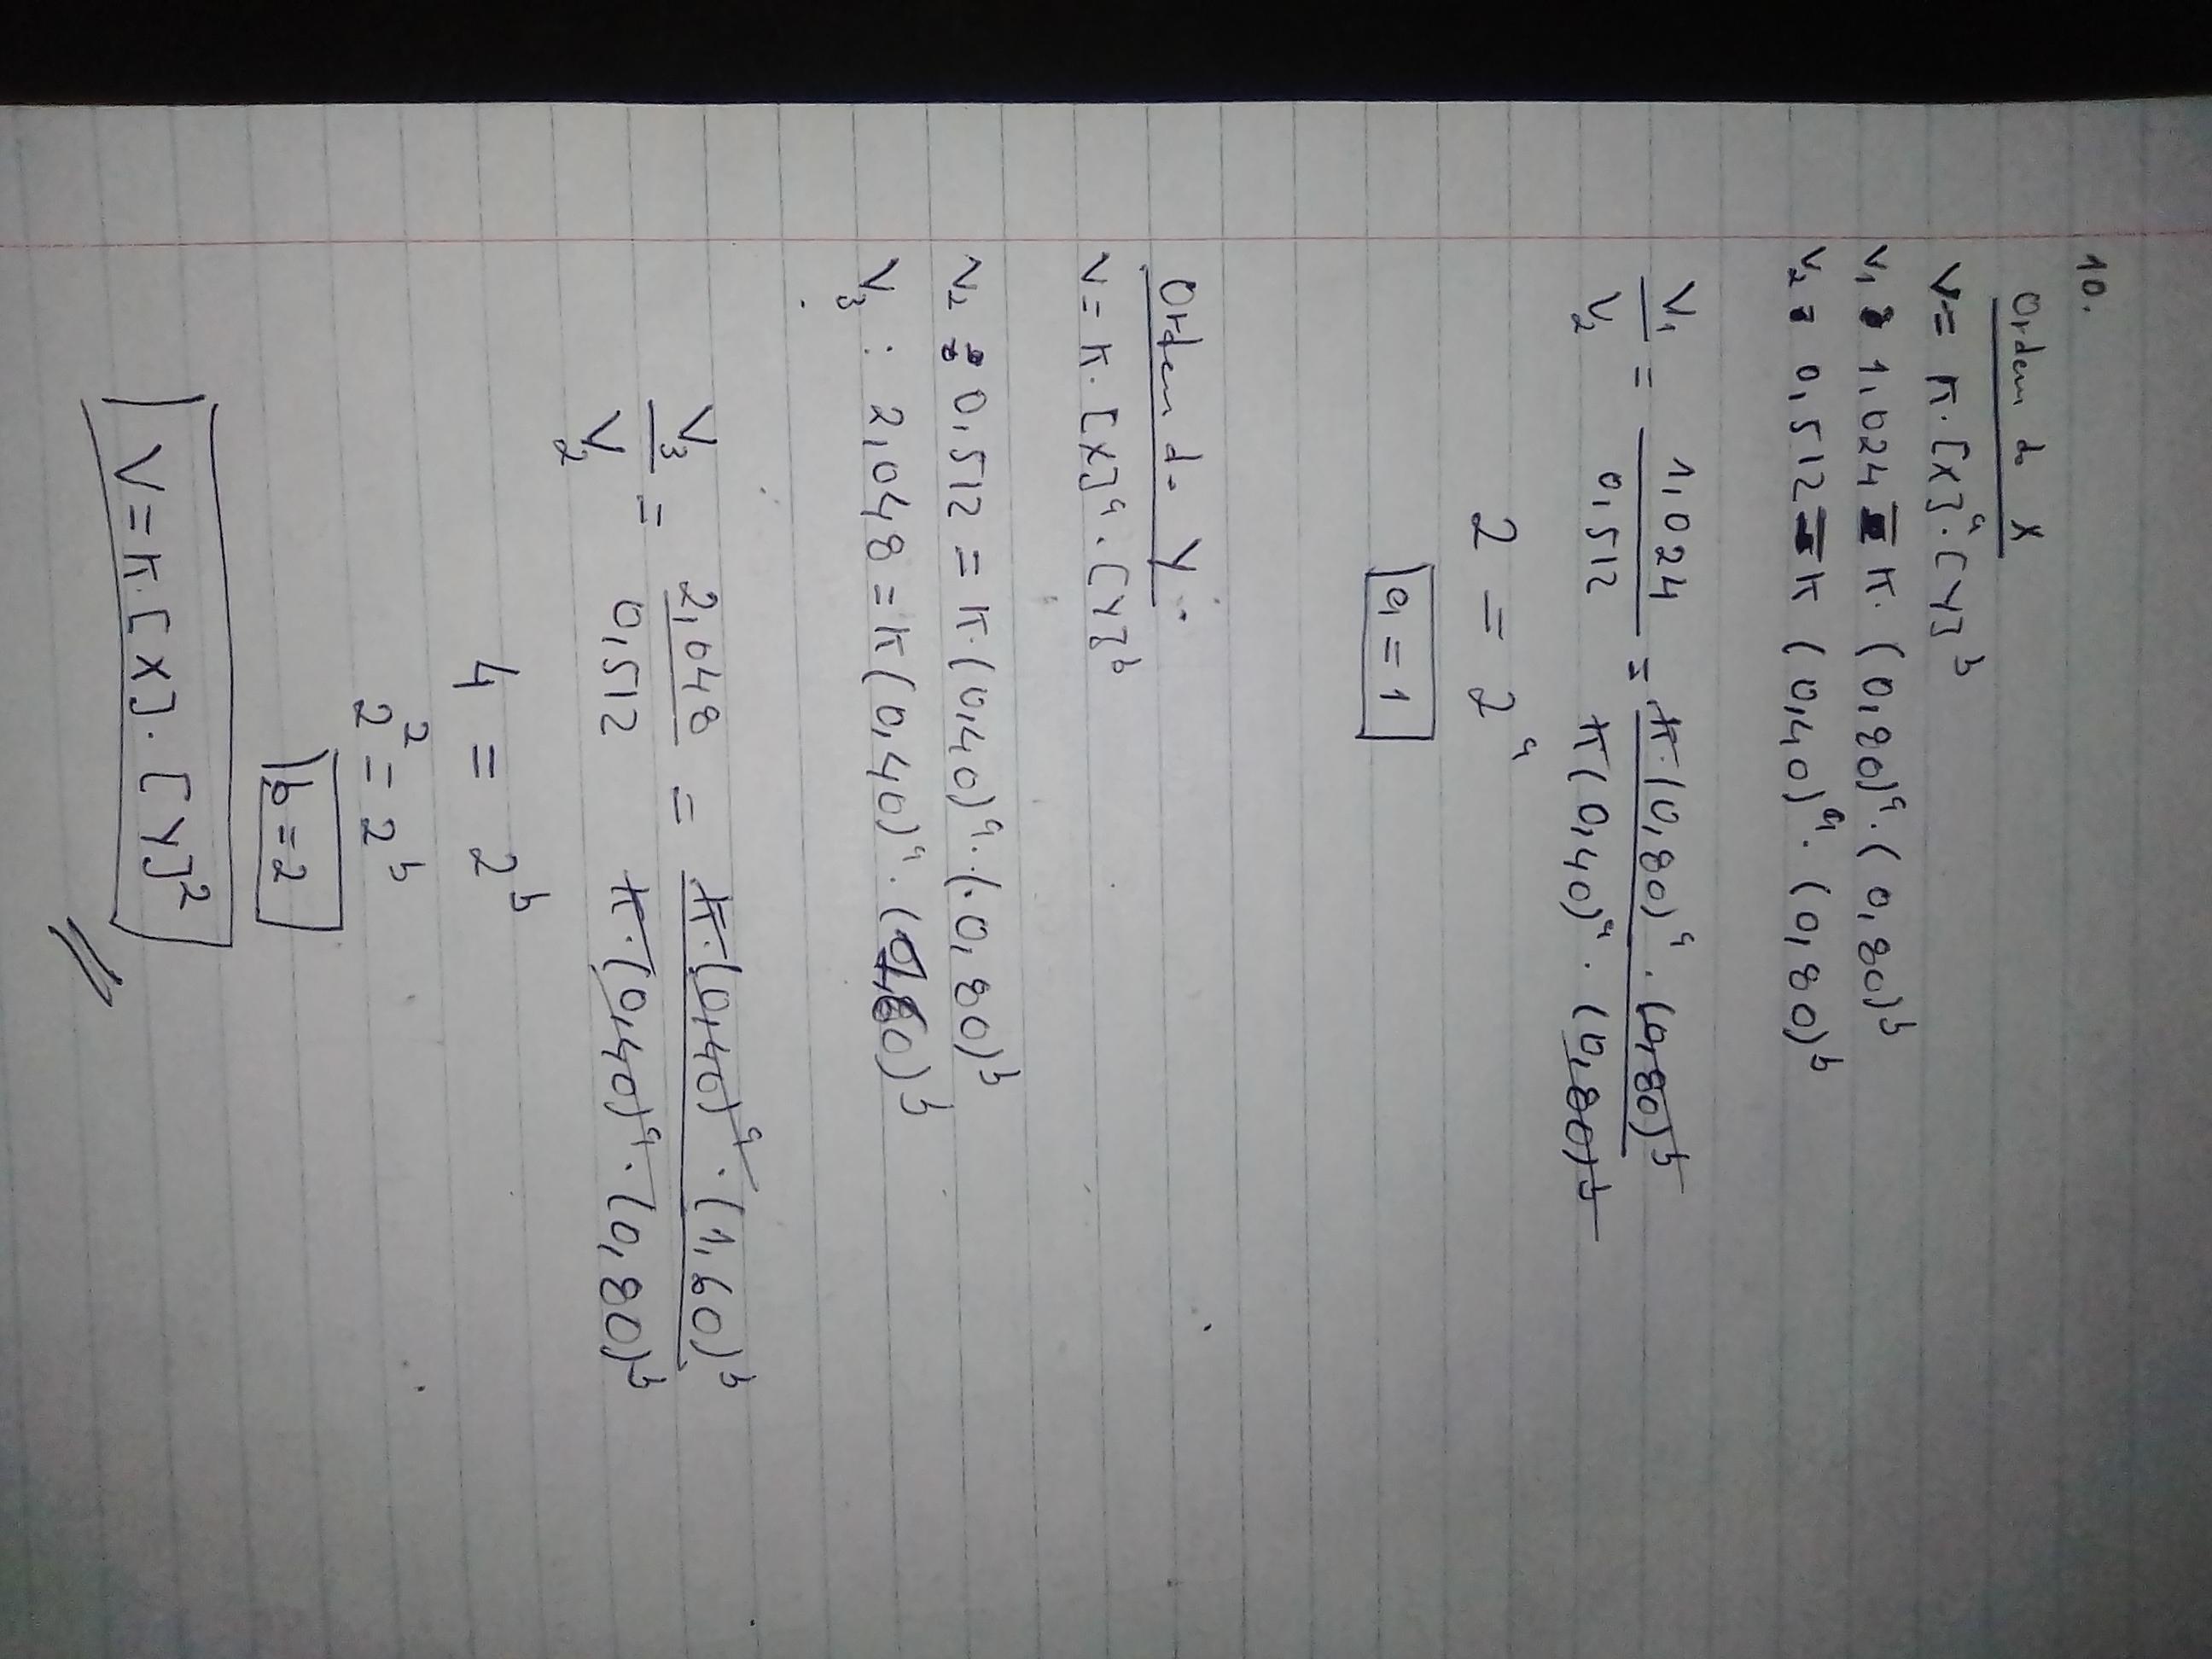 10.
Ordem do X
V = K·[X]^a·[Y]^b
V₁: 1,024 = K·(0,80)^a·(0,80)^b
V₂: 0,512 = K (0,40)^a·(0,80)^b
V₁/V₂ = 1,024/0,512 = K·(0,80)^a·(0,80)^b / K(0,40)^a·(0,80)^b
2 = 2^a
a = 1
Ordem do Y:
V = K·[X]^a·[Y]^b
V₂: 0,512 = K·(0,40)^a·(0,80)^b
V₃: 2,048 = K(0,40)^a·(1,60)^b
V₃/V₂ = 2,048/0,512 = K·(0,40)^a·(1,60)^b / K·(0,40)^a·(0,80)^b
4 = 2^b
2² = 2^b
b = 2
V = K·[X]·[Y]²